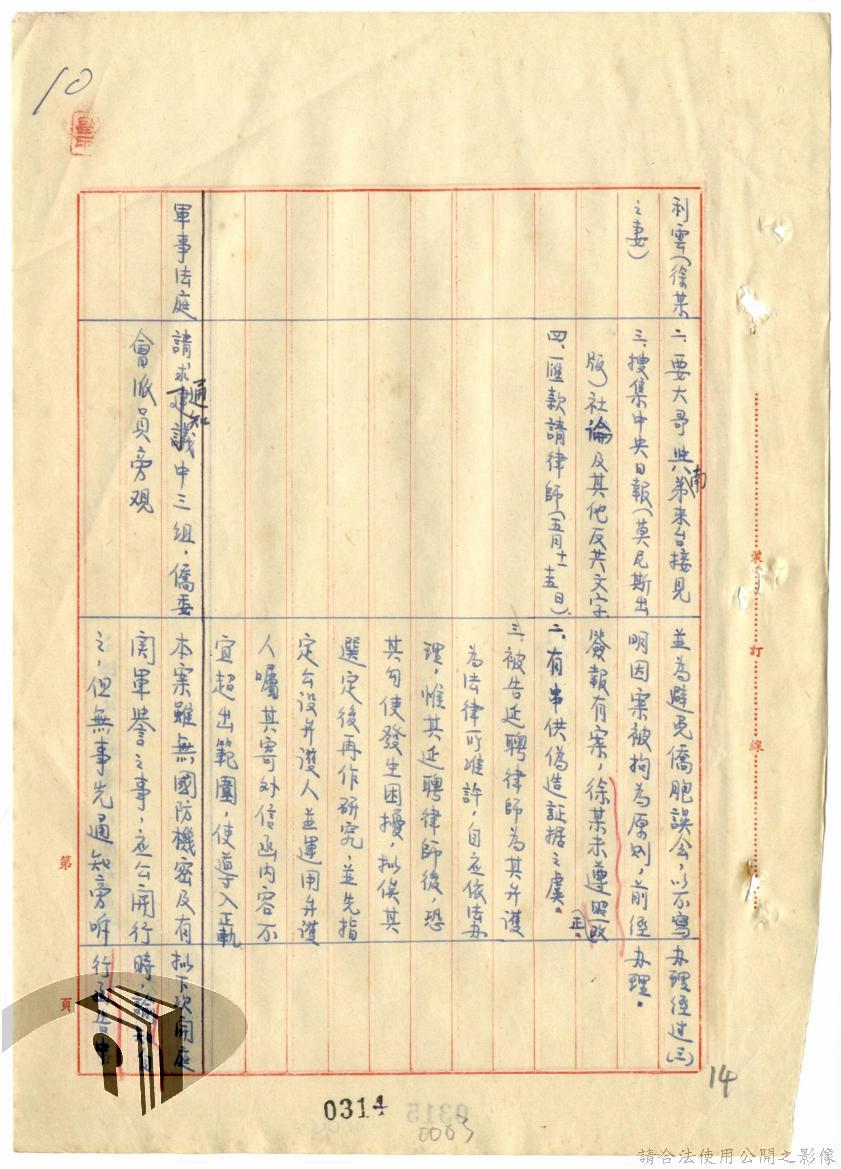 10
利雲(徐某
之妻)
二、要大哥與南弟來台接見
三、搜集中央日報(莫尼斯出
版)社論及其他反共文字
四、匯款請律師(五月十二、十五日)
並為避免僑胞誤会,以不寫
明因案被拘為原則,前經
簽報有案,徐某未遵照改正。
二、有串供偽造証据之虞。
三、被告延聘律師為其弁護
為法律所准許,自应依法办
理,惟其延聘律師後,恐
其勾使發生困擾,拟俟其
選定後再作研究,並先指
定公設弁護人並運用弁護
人囑其寄外信函內容不
宜超出範圍,使導入正軌
办理經过(三)
办理。
軍事法庭
請求通知中三組,僑委
會派員旁观
本案雖無國防機密及有
関軍譽之事,应公開行
之,但無事先通知旁听
拟下次開庭
時,
裝
訂
線
第
頁
14
0314
0315
0003
請合法使用公開之影像